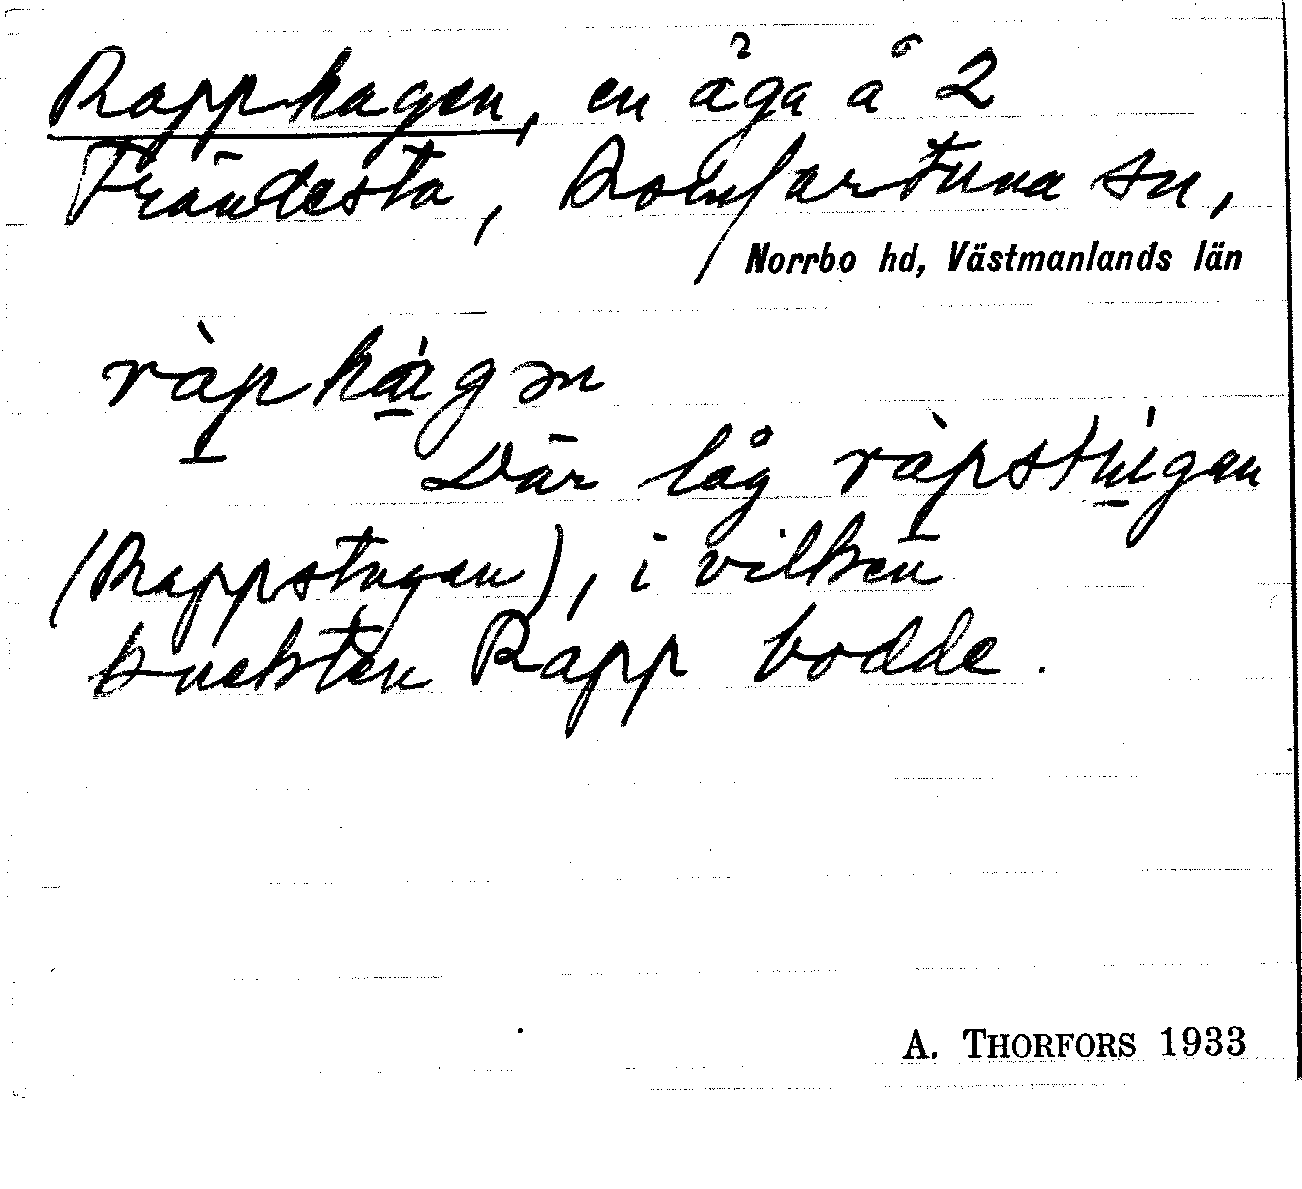 Rapphagen, en åga å 2
Frändesta, Romfartuna sn,
Norrbo hd, Västmanlands län
ràphágən
Där låg ràpstúgan
(Rappstugan), i vilken
knekten Rapp bodde.
A. THORFORS 1933